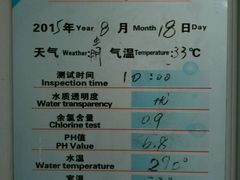 2015年Year 8月Month 18日Day
天气Weather:晴 气温Temperature:33℃
测试时间 10:00
Inspection time
水质透明度
Water transparency
余氯含量 0.9
Chlorine test
PH值 6.8
PH Value
水温 29.0°
Water temperature
室温